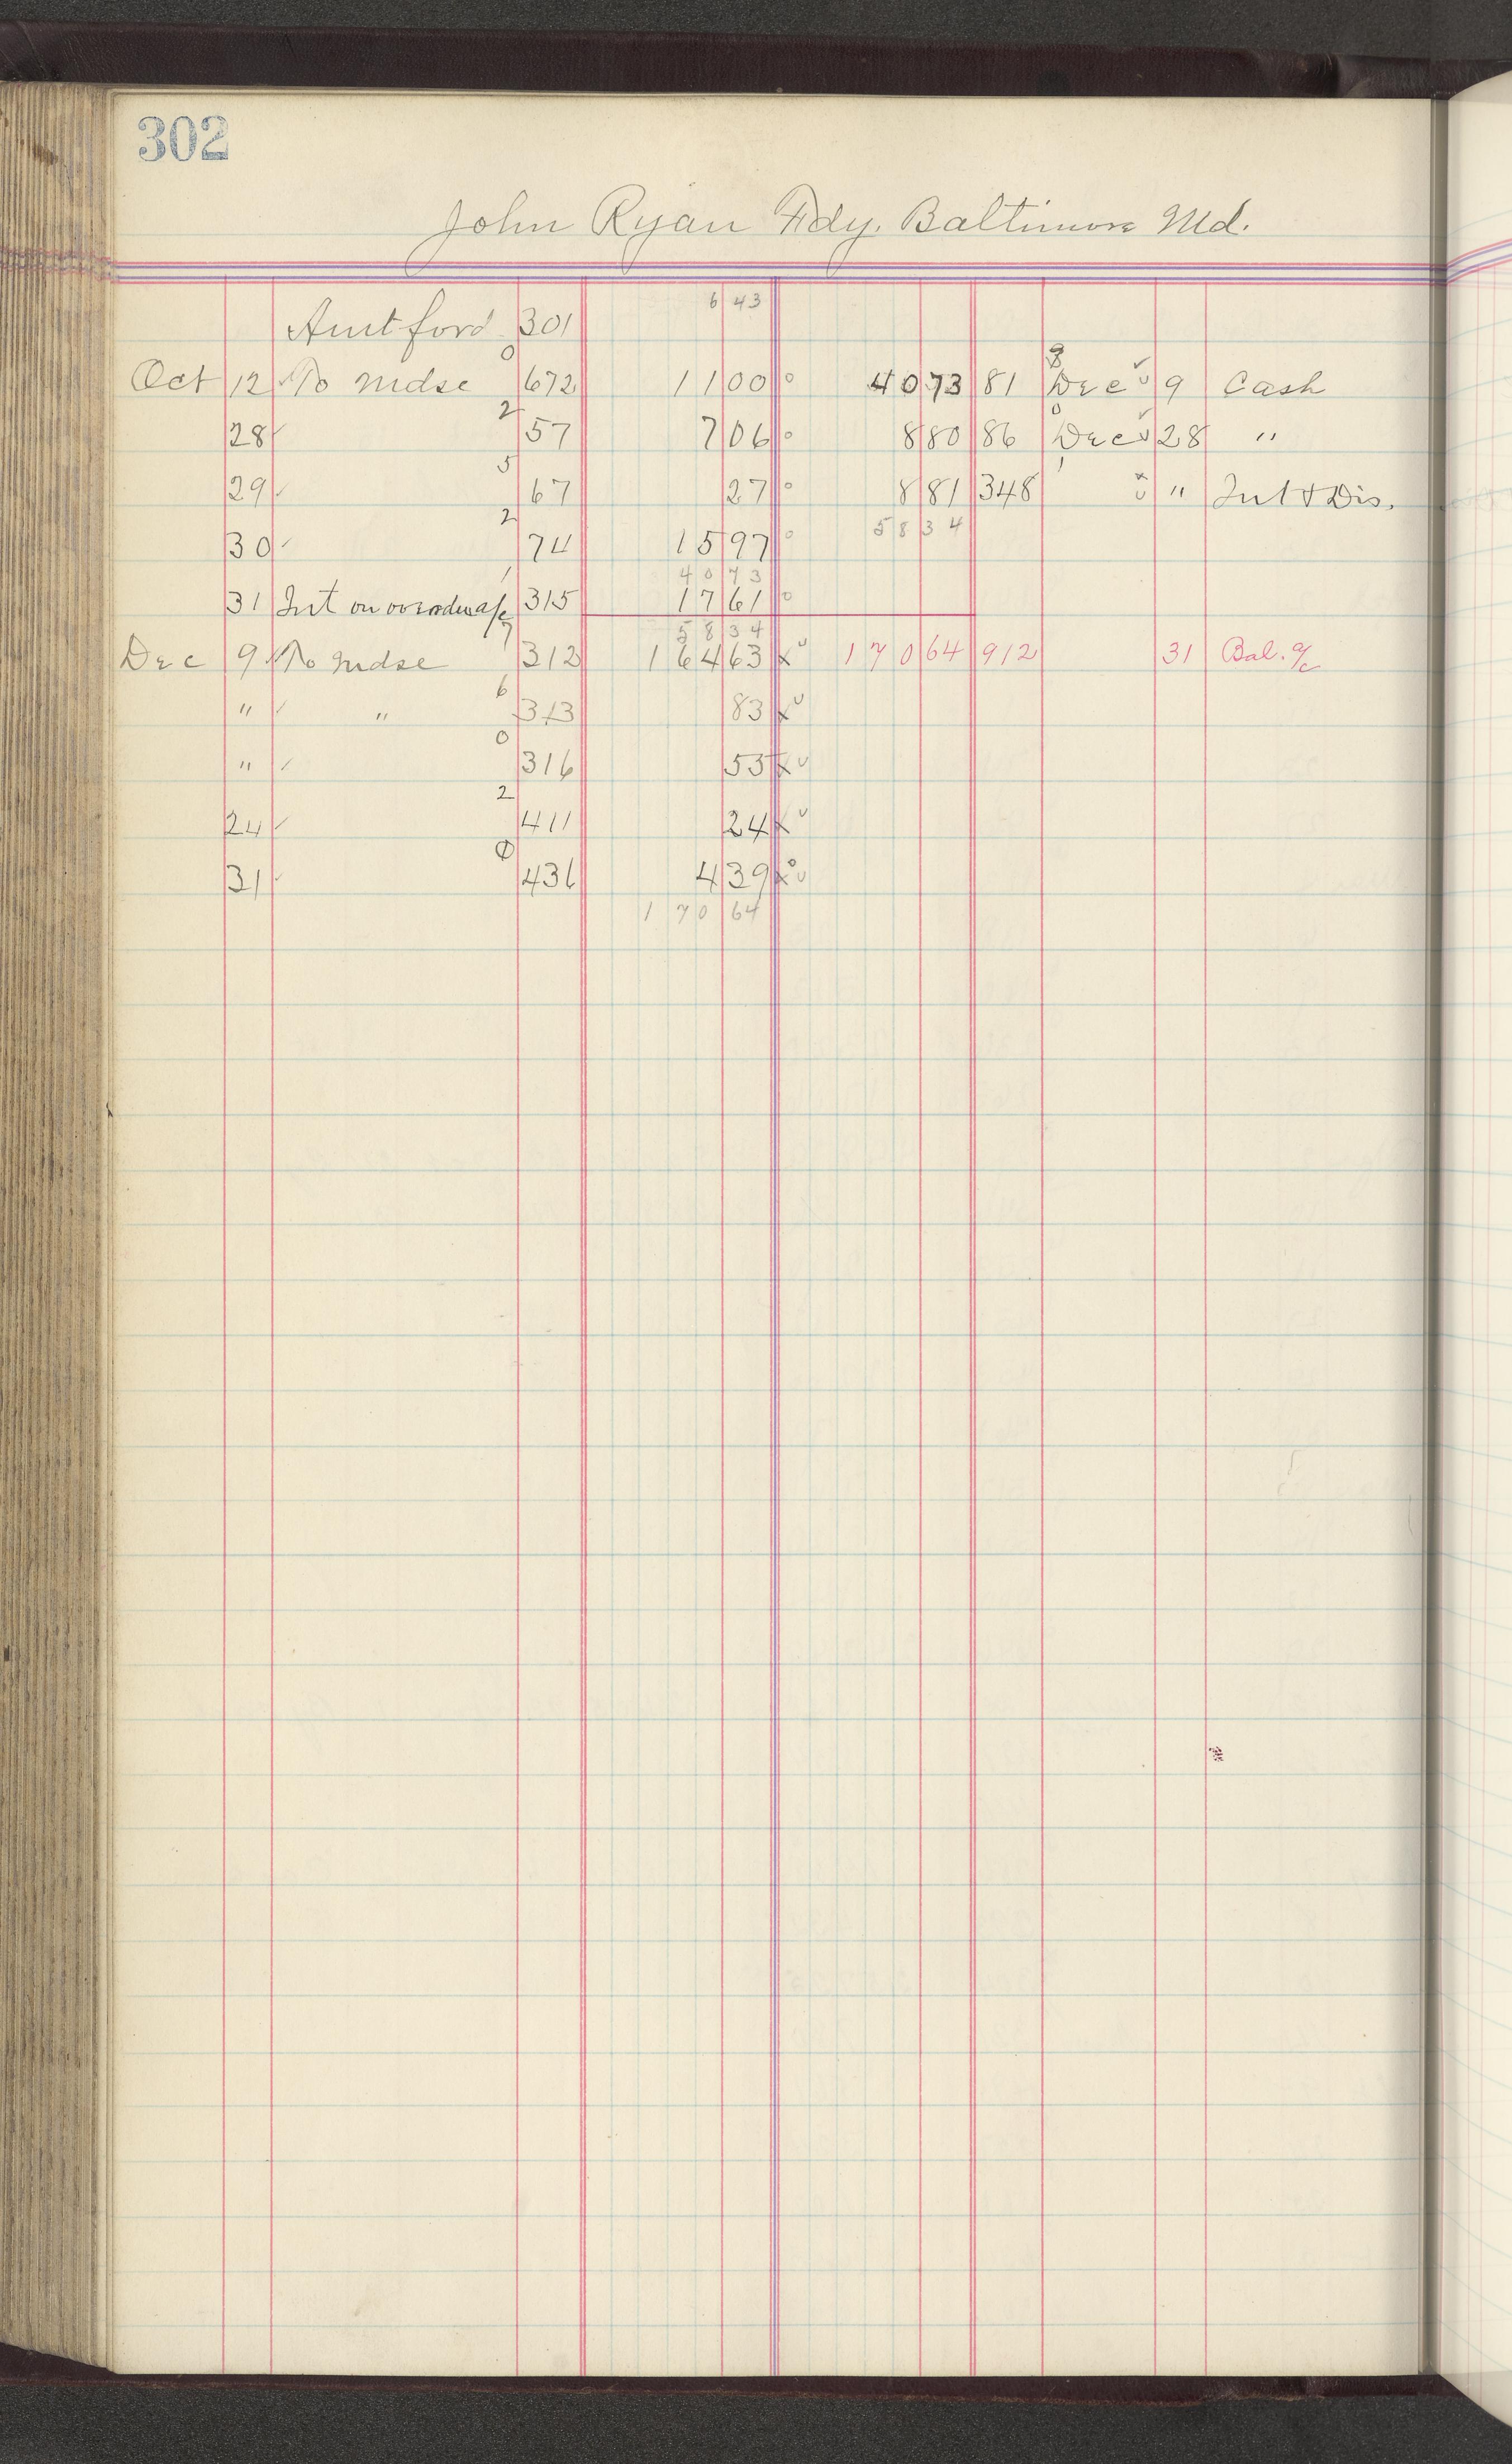 302
John Ryan Fdy. Baltimore Md.
6 43
Amt ford 301
0 8
Oct 12 To Mdse 672 11 00 40 73 81 Dec 9 Cash
2 0
28 57 7 06 8 80 86 Dec 28 "
5 1
29 67 27 8 81 348 " Int & Dis.
2 58 34
30 74 15 97
1 40 73
31 Int on overdue a/c 315 17 61
7 58 34
Dec 9 To Mdse 312 164 63 170 64 912 31 Bal. a/c
6
" " 313 83
0
" 316 53
2
24 411 24
0
31 436 4 39
170 64